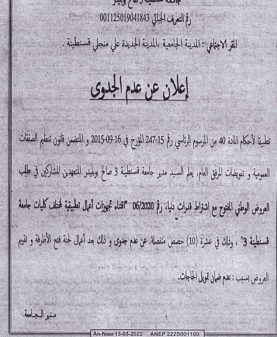 جامعة قسنطينة 3 صالح بوبنيدر
رقم التعريف الجبائي 001125019041843
المقر الاجتماعي : المدينة الجامعية ،المدينة الجديدة علي منجلي قسنطينة .
إعلان عن عدم الجدوى
تطبيقا لأحكام المادة 40 من المرسوم الرئاسي رقم 15-247 المؤرخ في 16-09-2015 و المتضمن قانون تنظيم الصفقات
العمومية و تفويضات المرفق العام، يعلم السيد مدير جامعة قسنطينة 3 صالح بوبنيدر المتعهدين المشاركين في طلب
العروض الوطني المفتوح مع اشتراط قدرات دنيا، رقم 06/2020 "اقتناء تجهيزات أعمال تطبيقية لمختلف كليات جامعة
قسنطينة 3" ، وذلك في عشرة (10) حصص منفصلة، عن عدم جدوى و ذلك بعد أعمال لجنة فتح الأظرفة و تقييم
العروض بسبب : عدم ضمان تمويل الحاجات.
مدير الجامعة
An-Nasr 13-03-2022 ANEP 2225001160